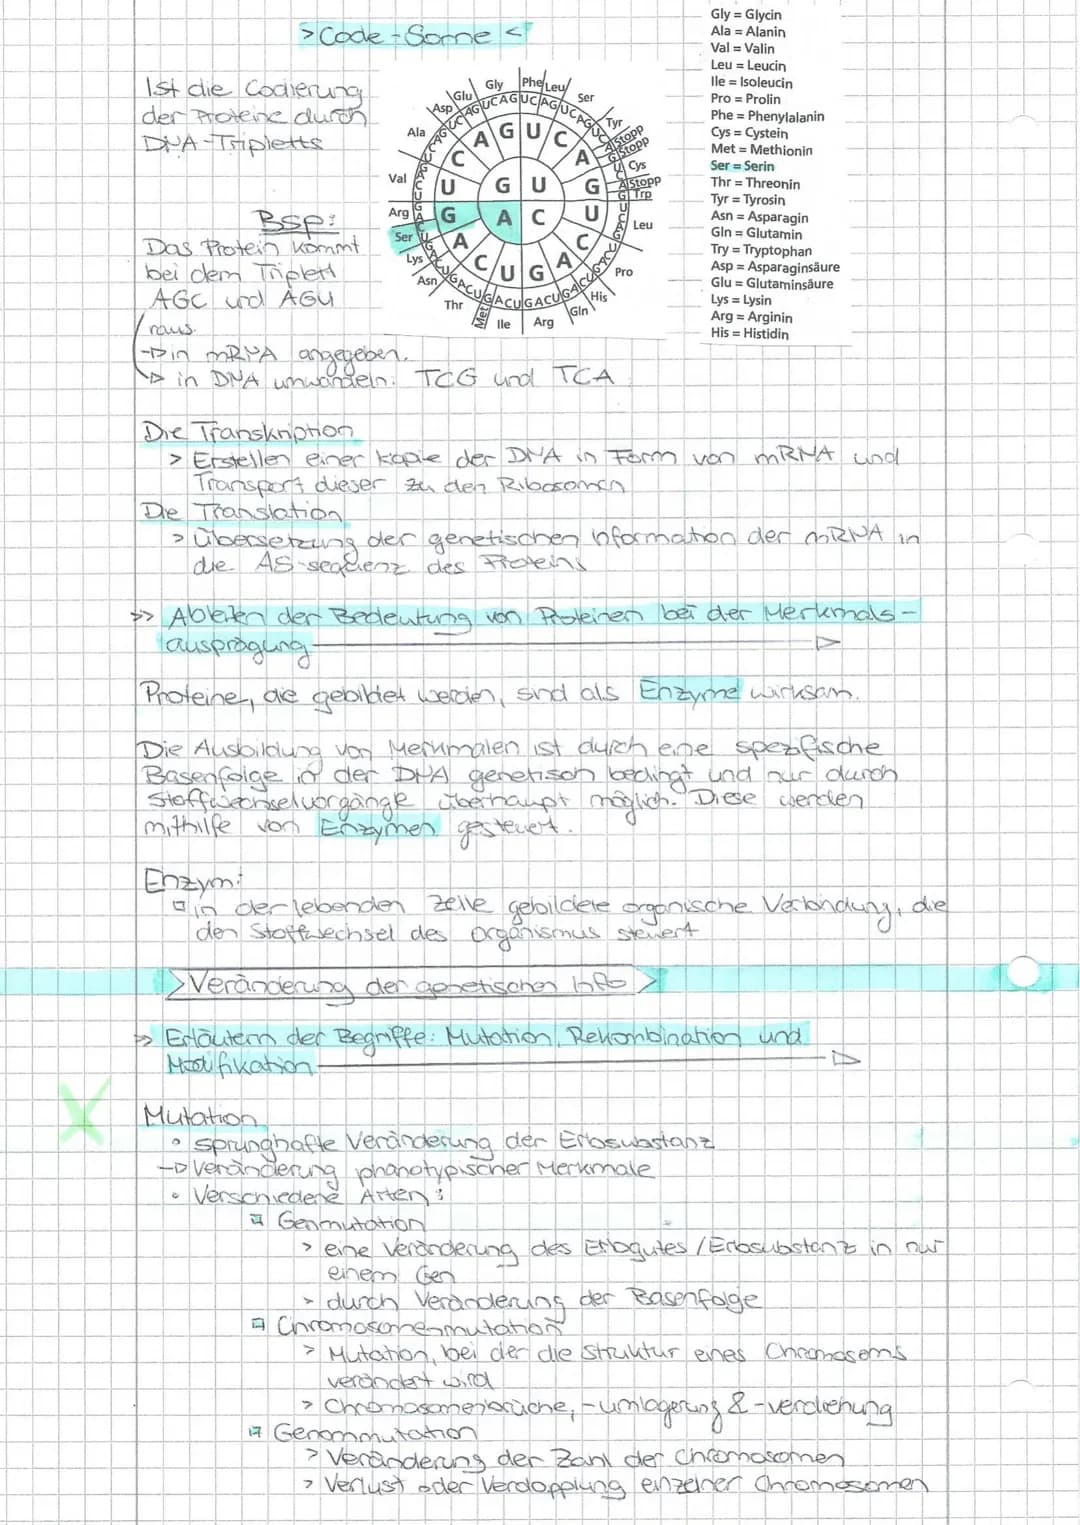 >Code-Sonne<
Ist die Codierung
der Proteine durch
DNA-Tripletts
Bsp:
Das Protein kommt
bei dem Triplett
AGC und AGU
raus.
→in mRNA angegeben.
→ in DNA umwandeln: TCG und TCA
Gly
Phe
Leu
Glu
Ser
Asp
Tyr
Ala
Stopp
Stopp
Cys
Val
Stopp
Trp
Arg
Leu
Ser
Lys
Asn
Pro
Thr
His
Gln
Met
Ile
Arg
G U
A C
Gly = Glycin
Ala = Alanin
Val = Valin
Leu = Leucin
Ile = Isoleucin
Pro = Prolin
Phe = Phenylalanin
Cys = Cystein
Met = Methionin
Ser = Serin
Thr = Threonin
Tyr = Tyrosin
Asn = Asparagin
Gln = Glutamin
Try = Tryptophan
Asp = Asparaginsäure
Glu = Glutaminsäure
Lys = Lysin
Arg = Arginin
His = Histidin
Die Transkription
> Erstellen einer Kopie der DNA in Form von mRNA und
Transport dieser zu den Ribosomen
Die Translation
> Übersetzung der genetischen Information der mRNA in
die AS-sequenz des Proteins
>> Ableiten der Bedeutung von Proteinen bei der Merkmals-
ausprägung
Proteine, die gebildet werden, sind als Enzyme wirksam.
Die Ausbildung von Merkmalen ist durch eine spezifische
Basenfolge in der DNA genetisch bedingt und nur durch
Stoffwechselvorgänge überhaupt möglich. Diese werden
mithilfe von Enzymen gesteuert.
Enzym:
in der lebenden Zelle gebildete organische Verbindung, die
den Stoffwechsel des Organismus steuert
>Veränderung der genetischen Info>
>> Erläutern der Begriffe: Mutation, Rekombination und
Modifikation
X
Mutation
• sprunghafte Veränderung der Erbsubstanz
→Veränderung phänotypischer Merkmale
• Verschiedene Arten:
Genmutation
> eine Veränderung des Erbgutes/Erbsubstanz in nur
einem Gen
> durch Veränderung der Basenfolge
Chromosomenmutation
> Mutation, bei der die Struktur eines Chromosoms
verändert wird
> Chromosomenbrüche, -umlagerung & -verdrehung
Genommutation
> Veränderung der Zahl der Chromosomen
> Verlust oder Verdopplung einzelner Chromosomen